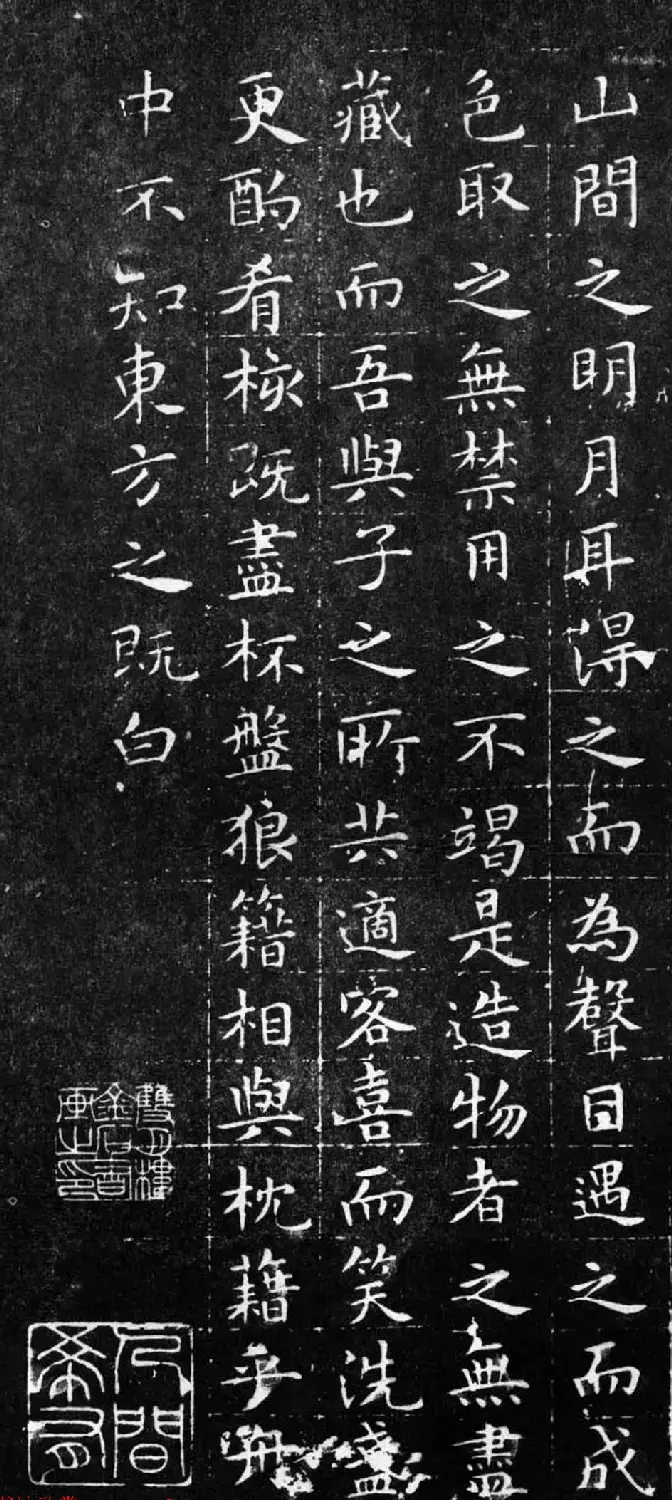 山間之明月耳得之而為聲目遇之而成
色取之無禁用之不竭是造物者之無盡
藏也而吾與子之所共適客喜而笑洗盞
更酌肴核既盡杯盤狼籍相與枕藉乎舟
中不知東方之既白
人間
希有